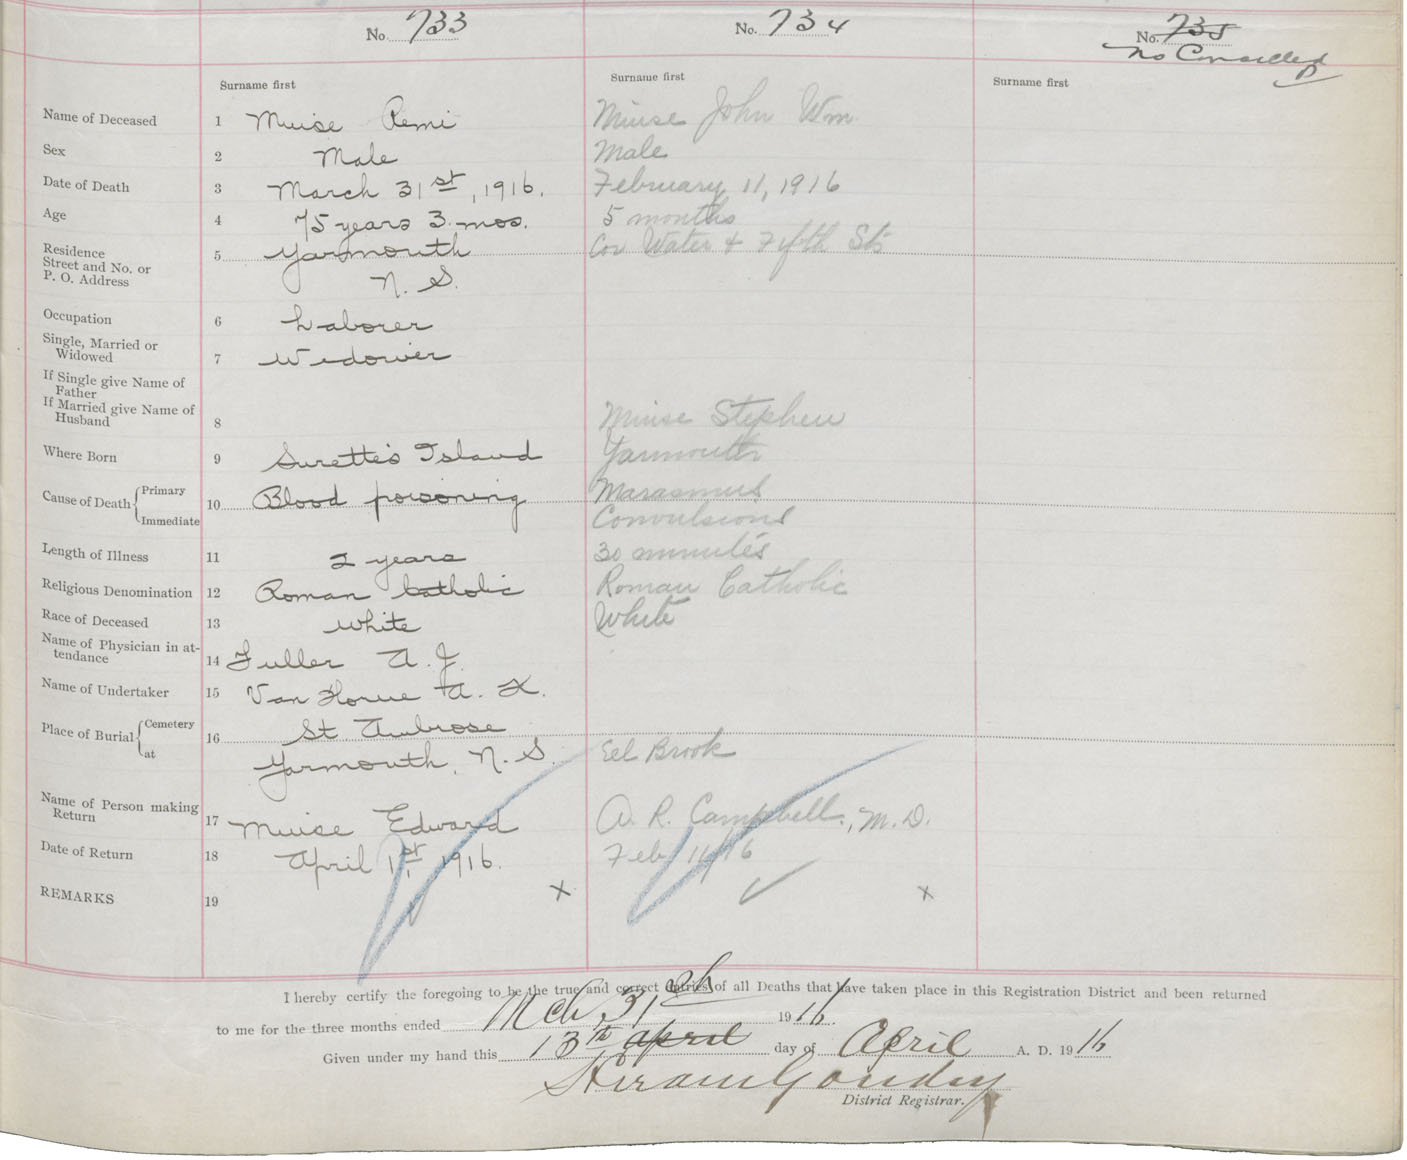 No. 733 No. 734 No. 735
No Cancelled
Surname first Surname first Surname first
Name of Deceased 1 Muise Remi Muise John Wm.
Sex 2 Male Male
Date of Death 3 March 31st, 1916. February 11, 1916
Age 4 75 years 3 mos. 5 months
Residence
Street and No. or 5 Yarmouth Cor Water & Fifth Sts
P. O. Address N. S.
Occupation 6 Laborer
Single, Married or
Widowed 7 Widower
If Single give Name of
Father
If Married give Name of
Husband 8 Muise Stephen
Where Born 9 Surette's Island Yarmouth
Cause of Death Primary 10 Blood poisoning Marasmus
Immediate Convulsions
Length of Illness 11 2 years 30 minutes
Religious Denomination 12 Roman Catholic Roman Catholic
Race of Deceased 13 White White
Name of Physician in at-
tendance 14 Fuller A. J.
Name of Undertaker 15 Van Horne A. K.
Place of Burial Cemetery 16 St. Ambrose
at Yarmouth, N. S. Eel Brook
Name of Person making
Return 17 Muise Edward A. R. Campbell, M.D.
Date of Return 18 April 1st, 1916. Feb 11/16
REMARKS 19 x x
I hereby certify the foregoing to be the true and correct entries of all Deaths that have taken place in this Registration District and been returned
to me for the three months ended Mch 31 1916.
Given under my hand this 13th april day of April A. D. 1916
Hiram Goudey
District Registrar.